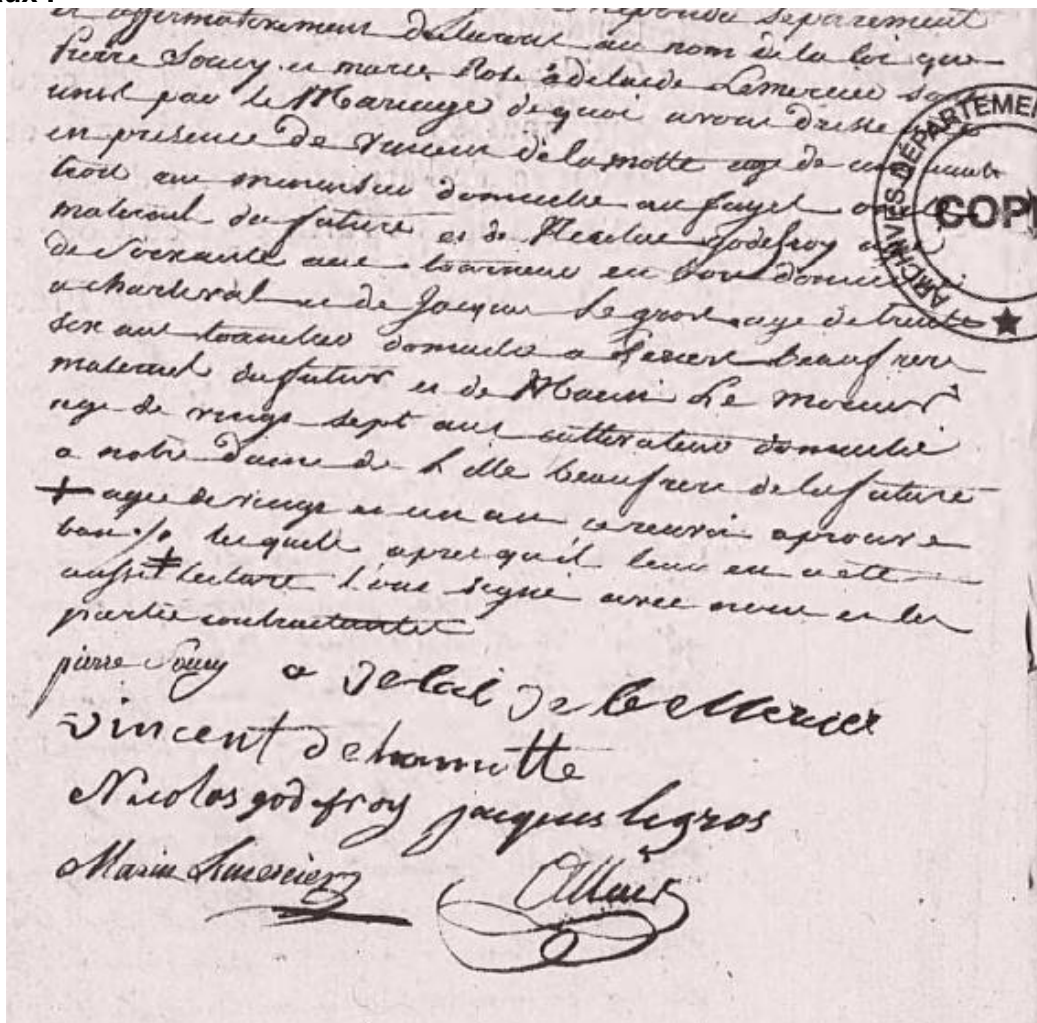 aux :
et affirmativement declaron au nom de la loi que
Pierre Soucy et marie Rose adelaide Lemercier sont
unit par le Mariage de quoi avons dresse
en presence de Vincent delamotte age de cinquante
trois ans menuisier domicilie au fayel oncle
maternel du future et de Nicolas godefroy age
de Soixante ans tourneur en bois domicilie
a charleval et de Jacques Legros age de trente
six ans domicilie a beaufrere
maternel du futur et de Marin Le
age de vingt sept ans cultivateur domicilie
a notre Dame de L isle beaufrere de la future
+ agee de vingt et un an ce renvoi aprouve
bon ./. lequels apres qu'il leur en a ete
aussi ‡ lecture l'ont signé avec nous et les
partie contractantes
pierre Soucy a delaide lemercier
vincent delamotte
Nicolas godefroy jacques legros
Marin Lemercier Allais
ARCHIVES DÉPARTEMEN
COPI